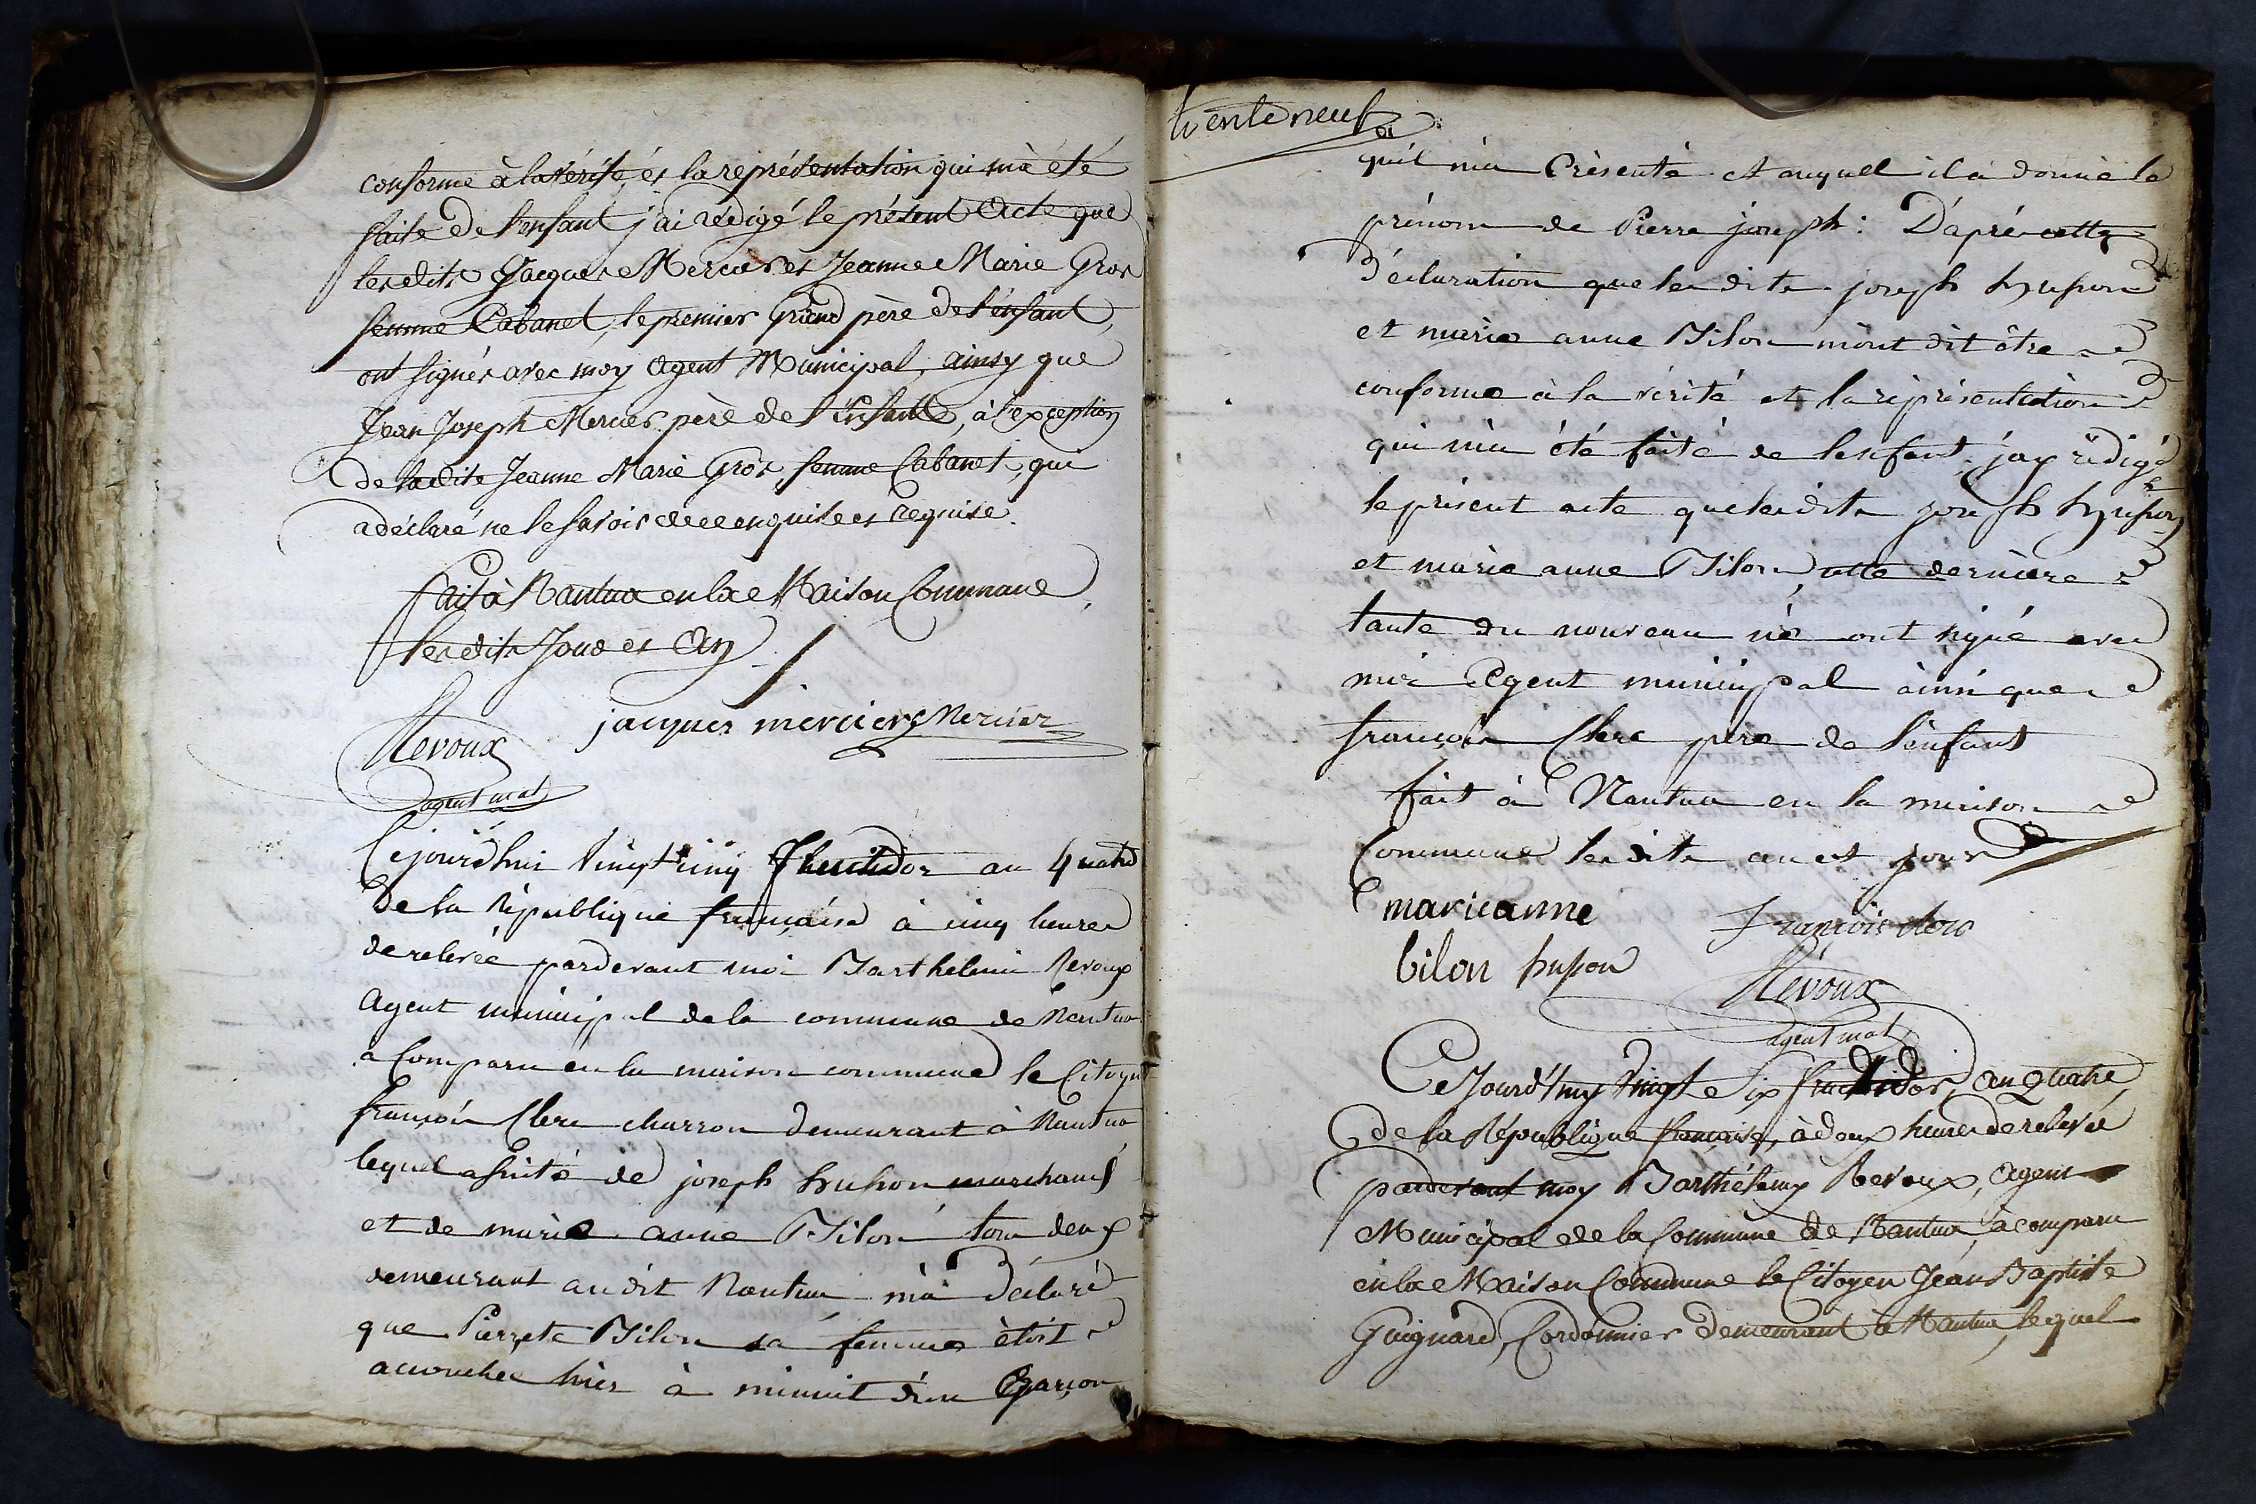 conforme à la vérité, et la représentation qui m'a été
faite de l'enfant j'ai rédigé le présent Acte que
lesdits Jacques Mercier et Jeanne Marie Gros
femme Cabanet, le premier Grand père de l'énfant,
ont signés avec moy Agent Municipal, ainsy que
Jean Joseph Mercier père de l'Enfant, à l'exception
de ladite Jeanne Marie Gros, femme Cabanet, qui
a déclaré ne le savoir de ce enquise et requise.
fait à Nantua en la Maison Commune
lesdits Jour et An
jacques mercier Mercier
Revoux
agent mal
Cejourdhui vingt cinq fructidor an 4 quatre
de la République française à cinq heures
de relevée pardevant moi Barthelemi Revoux
agent municipal de la commune de Nantua
a Comparu en la maison commune le Citoyen
françois Clerc charron demeurant à Nantua
lequel assisté de joseph husson marchand
et de marie anne Bilon tous deux
demeurant audit Nantua m'a déclaré
que Pierrete Bilon sa femme étoit
accouchée hier à minuit d'un Garçon
trente neuf
qu'il m'a Présenté et auquel il a donné le
prénom de Pierre joseph : D'apré cette
déclaration que les dits joseph husson
et marie anne Bilon m'ont dit être
conforme à la vérité et la réprésentation
qui m'a été faite de lenfant j'ay rédigé
le présent acte que les dits joseph husson
et marie anne Bilon cette dernière
tante du nouveau né ont signé avec
moi Agent municipal ainsi que
françois Clerc père de l'enfant
fait à Nantua en la maison
Commune les dits an et jour
marieanne françois clerc
bilon husson
Révoux
agent mal
Cejourd'huy Vingt Six fructidor, an Quatre
de la République française, à deux heures de relevée
pardevant moy Barthélemy Revoux, Agent
Municipal de la Commune de Nantua, à comparu
en la Maison Commune le Citoyen Jean Baptiste
Guignard, Cordonnier demeurant à Nantua, lequel